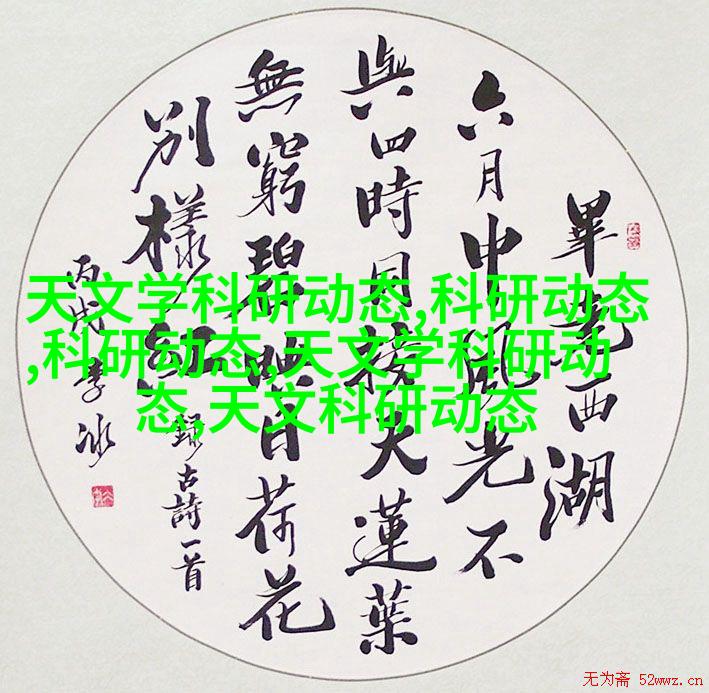 畢竟西湖
六月中風光不
與四時同接天蓮葉
無窮碧映日荷花
別樣紅
錄古詩一首
李冰
天文学科研动态,科研动态
,科研动态,天文学科研动
态,天文科研动态
无为斋 52wwz.cn